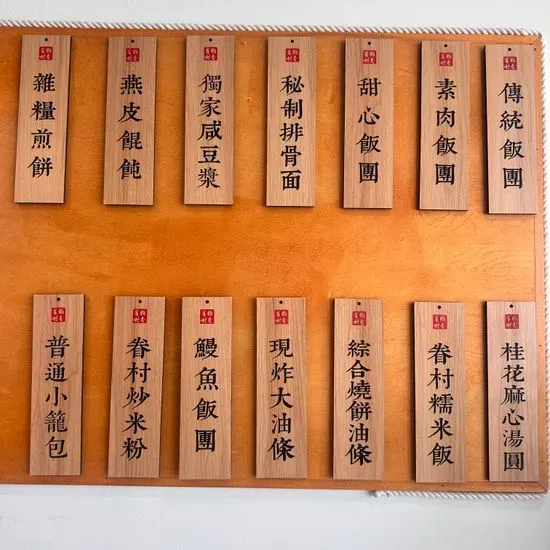 傳統飯團
素肉飯團
甜心飯團
秘制排骨面
獨家咸豆漿
燕皮餛飩
雜糧煎餅
桂花麻心湯圓
眷村糯米飯
綜合燒餅油條
現炸大油條
鰻魚飯團
眷村炒米粉
普通小籠包